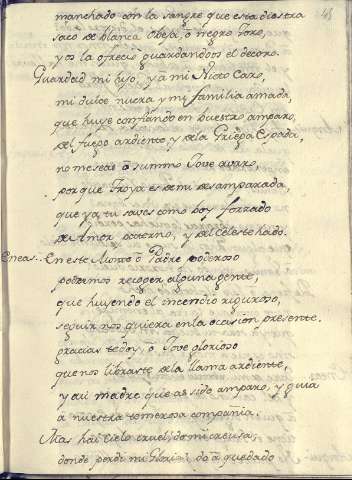 manchado con la sangre que esta diestra
saco de blanca obeja, o negro toro,
y os la ofrecio guardandoos el decoro.
Guardad mi hijo, y a mi Nieto Caro,
mi dulce nuera y mi familia amada,
que huye confiando en vuestro amparo,
del fuego ardiente y de la Griega Espada,
no me seas o summo Jove avaro,
porque Troya es de mi desamparada,
que ya tu saves como boy forzado
de Amor paterno, y del celeste hado.
Eneas. En este Monte o Padre poderoso
podremos recoger alguna gente,
que huyendo el incendio riguroso,
seguirnos quiera en la ocasion presente.
gracias te doy, o Jove glorioso
que nos libraste de la llama ardiente,
y a mi madre que a sido amparo, y guia
a nuestra temerosa compañia.
Mas hai cielo cruel, do mi creusa,
donde perdi mi Gloria, do a quedado